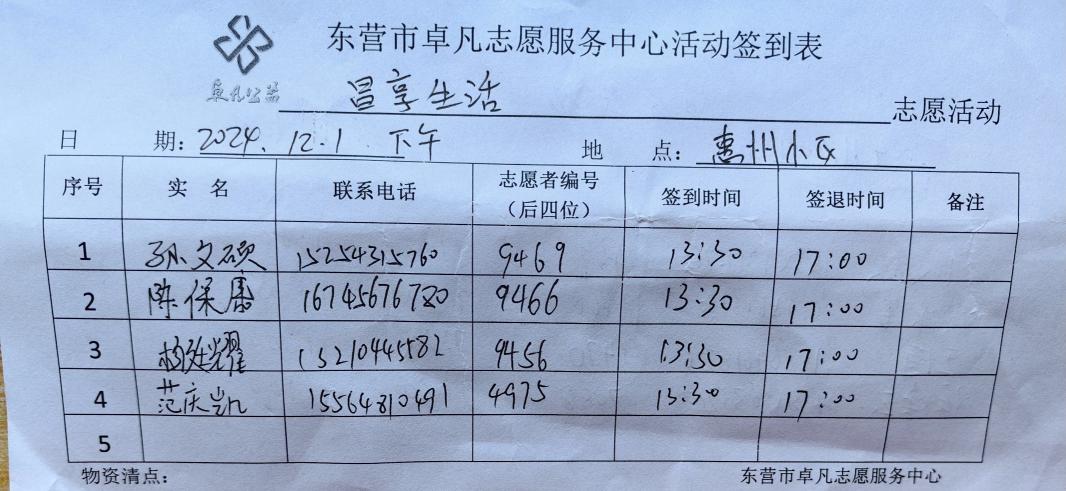 东营市卓凡志愿服务中心活动签到表
卓凡公益 昌享生活 志愿活动
日 期: 2024.12.1 下午 地 点: 惠州小区
序号 实 名 联系电话 志愿者编号（后四位） 签到时间 签退时间 备注
1 孙文硕 15254315760 9469 13:30 17:00
2 陈保唐 16745676780 9466 13:30 17:00
3 杨延耀 15210445582 9456 13:30 17:00
4 范庆凯 15564810491 4975 13:30 17:00
5
物资清点: 东营市卓凡志愿服务中心